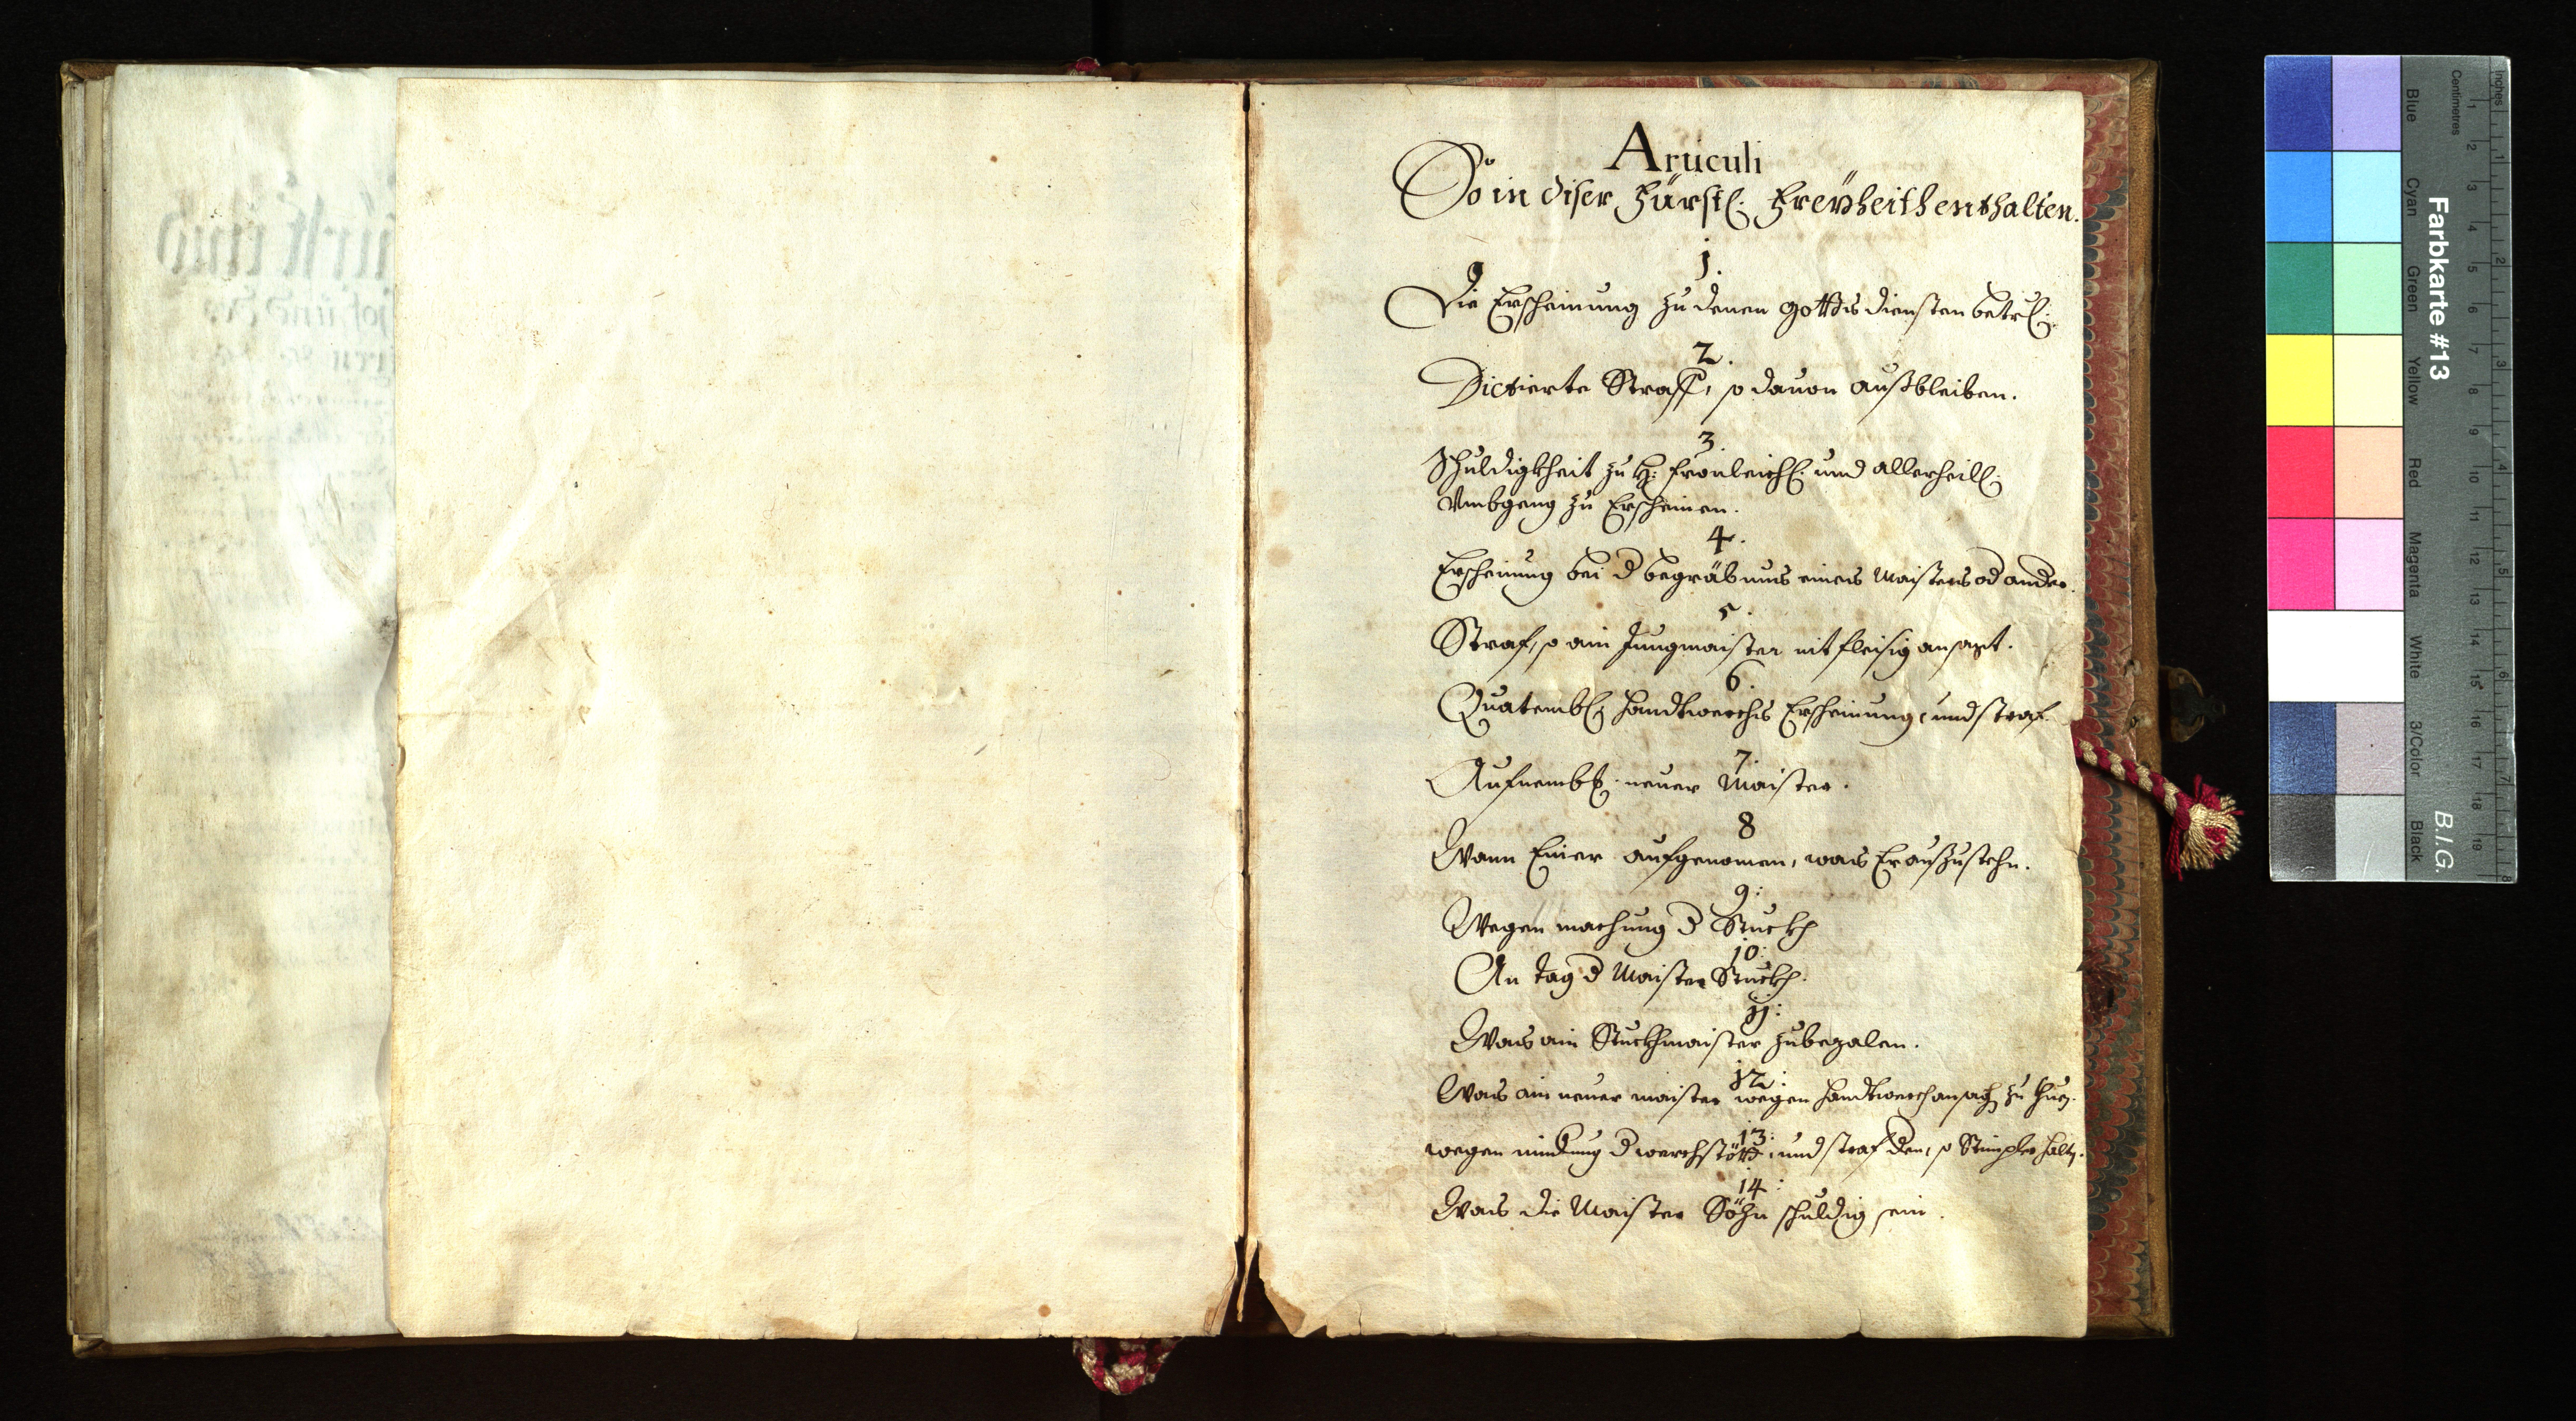 Articuli
So in diser Fürstl: Freÿheith enthalten.
1.
Die Erscheinung zu denen Gottsdiensten betrl:
2.
Dictierte Straff, so dauon außbleiben.
3.
Schuldigkheit zu H: fronleichl: und allerheill:
Vmbgang zu Erscheinen.
4.
Erscheinung bei d begräbnus eines Maisters od ander.
5.
Straf, so ain Jungmaister nit fleisig ansagt.
6.
Quatembl: Handtwerchs Erscheinung, und straf.
7.
Aufnembl: neuer Maister.
8
Wann Einer aufgenomen, was Er außzustehn.
9:
Wegen machung d Stuckh
10:
An tag d Maister Stuckh.
11:
Was ain Stuckhmaister zubezalen.
12:
Was ain neuer maister wegen handtwerch ansag zu thuen.
13:
wegen d werchstött, und straf den, so Stimpler halten.
14:
Was die Maister Söhn schuldig sein.
Farbkarte #13
B.I.G.
Inches
Centimetres
Blue
Cyan
Green
Yellow
Red
Magenta
White
3/Color
Black